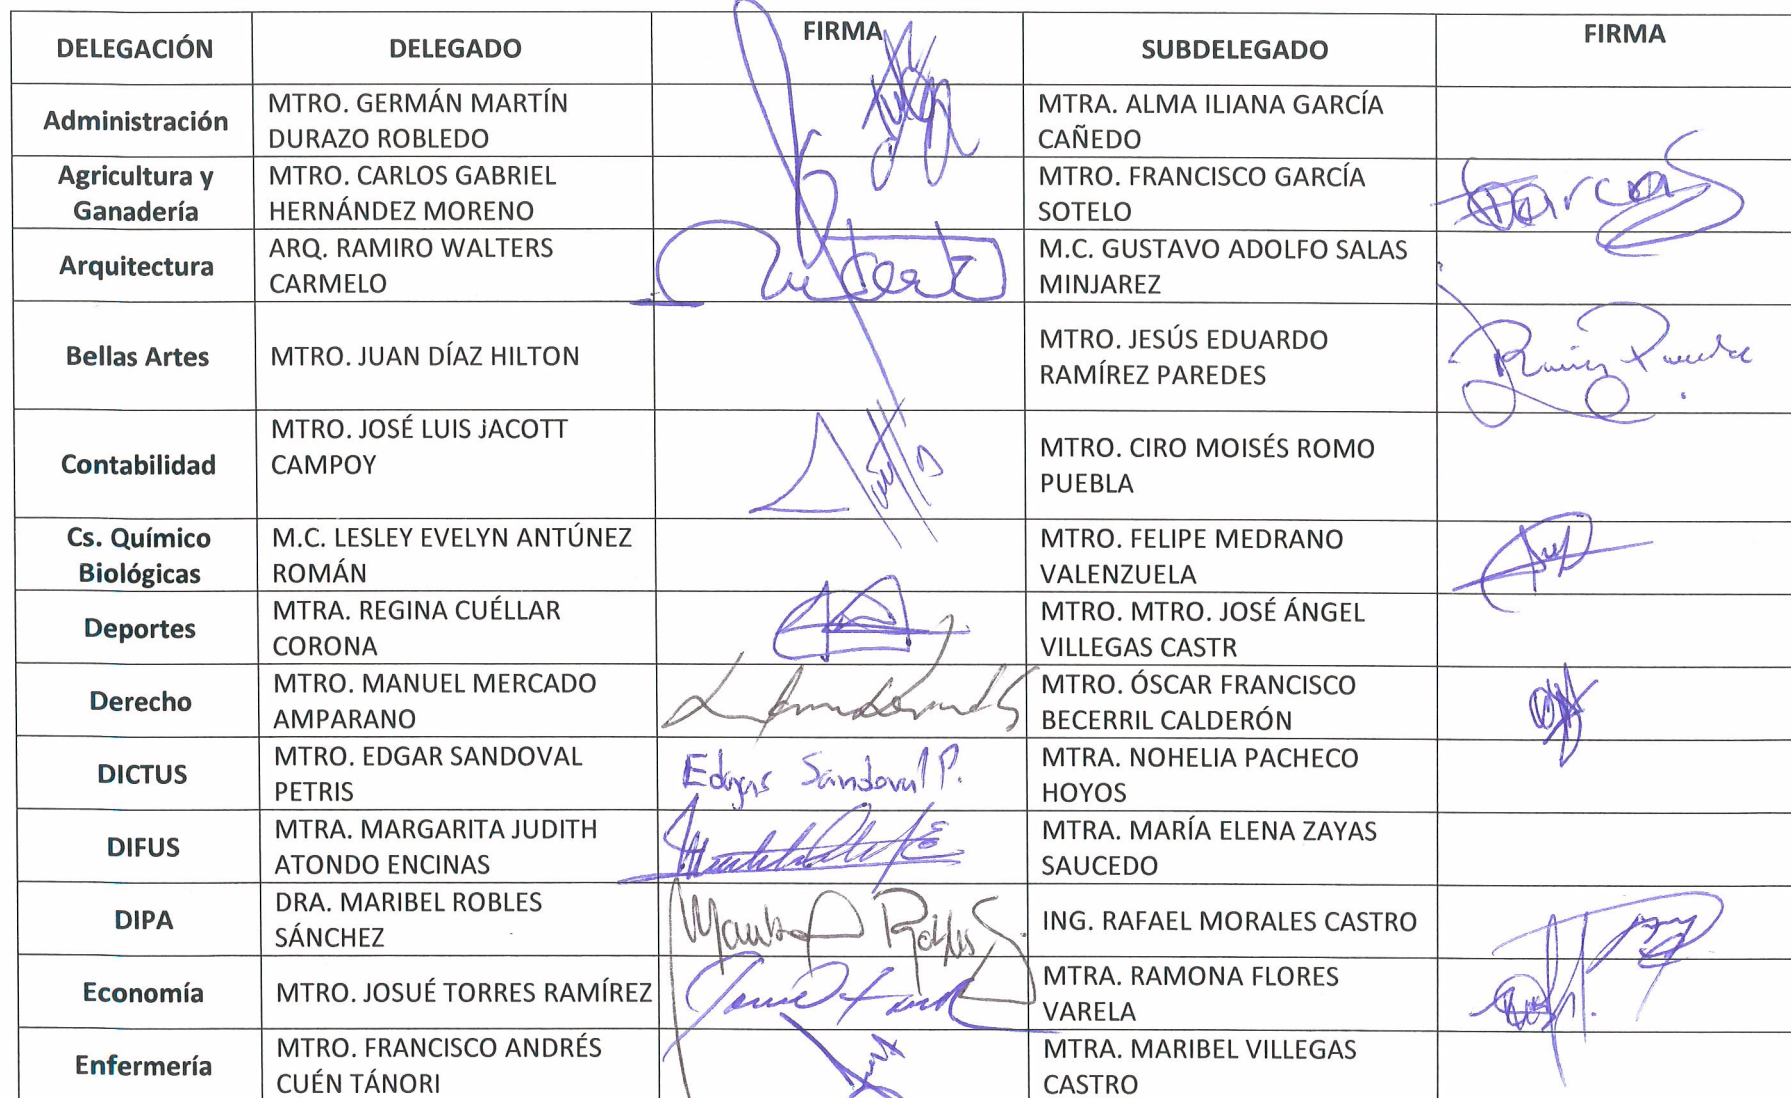 DELEGACIÓN DELEGADO FIRMA SUBDELEGADO FIRMA
Administración MTRO. GERMÁN MARTÍN DURAZO ROBLEDO MTRA. ALMA ILIANA GARCÍA CAÑEDO
Agricultura y Ganadería MTRO. CARLOS GABRIEL HERNÁNDEZ MORENO MTRO. FRANCISCO GARCÍA SOTELO
Arquitectura ARQ. RAMIRO WALTERS CARMELO M.C. GUSTAVO ADOLFO SALAS MINJAREZ
Bellas Artes MTRO. JUAN DÍAZ HILTON MTRO. JESÚS EDUARDO RAMÍREZ PAREDES
Contabilidad MTRO. JOSÉ LUIS JACOTT CAMPOY MTRO. CIRO MOISÉS ROMO PUEBLA
Cs. Químico Biológicas M.C. LESLEY EVELYN ANTÚNEZ ROMÁN MTRO. FELIPE MEDRANO VALENZUELA
Deportes MTRA. REGINA CUÉLLAR CORONA MTRO. MTRO. JOSÉ ÁNGEL VILLEGAS CASTR
Derecho MTRO. MANUEL MERCADO AMPARANO MTRO. ÓSCAR FRANCISCO BECERRIL CALDERÓN
DICTUS MTRO. EDGAR SANDOVAL PETRIS Edgar Sandoval P. MTRA. NOHELIA PACHECO HOYOS
DIFUS MTRA. MARGARITA JUDITH ATONDO ENCINAS MTRA. MARÍA ELENA ZAYAS SAUCEDO
DIPA DRA. MARIBEL ROBLES SÁNCHEZ Maribel Robles S. ING. RAFAEL MORALES CASTRO
Economía MTRO. JOSUÉ TORRES RAMÍREZ MTRA. RAMONA FLORES VARELA
Enfermería MTRO. FRANCISCO ANDRÉS CUÉN TÁNORI MTRA. MARIBEL VILLEGAS CASTRO